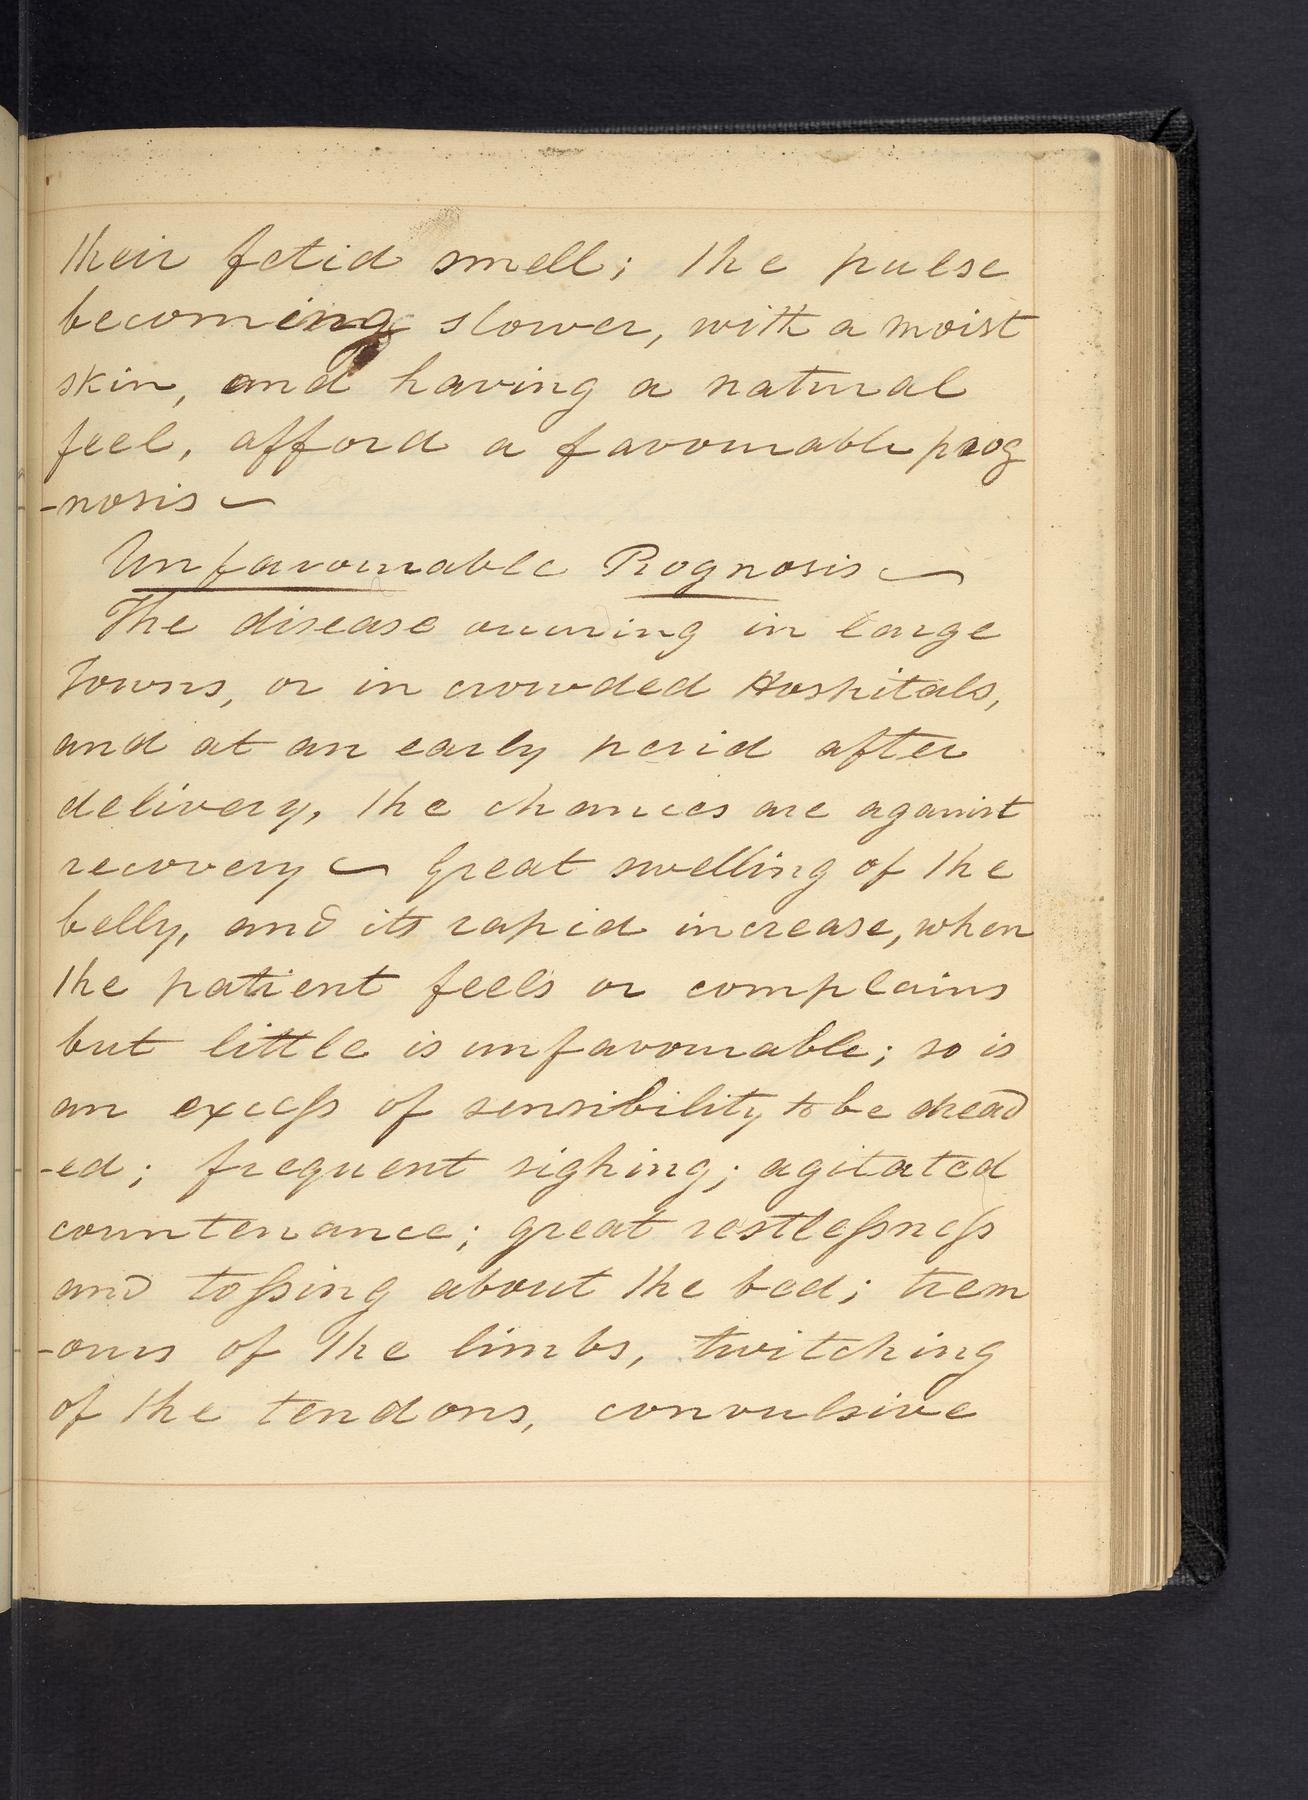 their fetid smell; the pulse
becoming slower, with a moist
skin, and having a natural
feel, afford a favourable prog
-nosis ~
Unfavourable Prognosis ~
The disease occuring in large
Towns, or in crowded Hospitals,
and at an early perid after
delivery, the chances are against
recovery ~ Great swelling of the
belly, and its rapid increase, when
the patient feels or complains
but little is unfavourable; so is
an excess of sensibility to be dread
-ed; frequent sighing; agitated
countenance; great restlessness
and tossing about the bed; trem
-ours of the limbs, twitching
of the tendons, convulsive